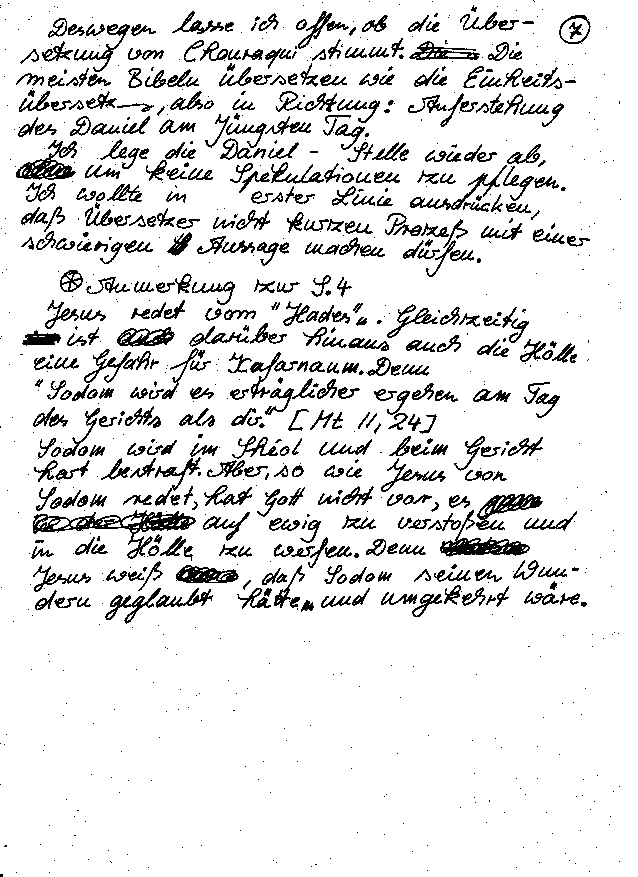 Deswegen lasse ich offen, ob die Über- 7
setzung von Chouraqui stimmt. Die
meisten Bibeln übersetzen wie die Einheits-
übersetz, also in Richtung: Auferstehung
des Daniel am Jüngsten Tag.
Ich lege die Daniel - Stelle wieder ab,
um keine Spekulationen zu pflegen.
Ich wollte in erster Linie ausdrücken,
daß Übersetzer nicht kurzen Prozeß mit einer
schwierigen Aussage machen dürfen.
⊛ Anmerkung zur S. 4
Jesus redet vom "Hades". Gleichzeitig
ist darüber hinaus auch die Hölle
eine Gefahr für Kafarnaum. Denn
"Sodom wird es erträglicher ergehen am Tag
des Gerichts als dir." [Mt 11, 24]
Sodom wird im Shéol und beim Gericht
hart bestraft. Aber, so wie Jesus von
Sodom redet, hat Gott nicht vor, es
auf ewig zu verstoßen und
in die Hölle zu werfen. Denn
Jesus weiß, daß Sodom seinen Wun-
dern geglaubt hätte und umgekehrt wäre.